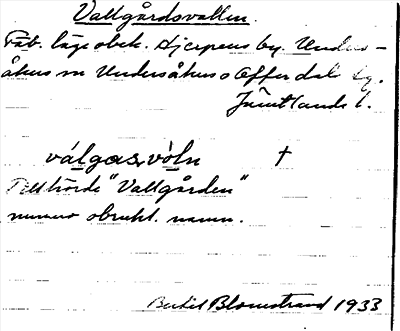 Vallgårdsvallen.
Fäb. läge obek. Hjerpens by. Unders-
åkers sn Undersåkers o Offerdals tg.
Jämtlands l.
válgas̩vòln †
Tillhörde "Vallgården"
numera obrukl. namn.
Bertil Blomstrand 1933